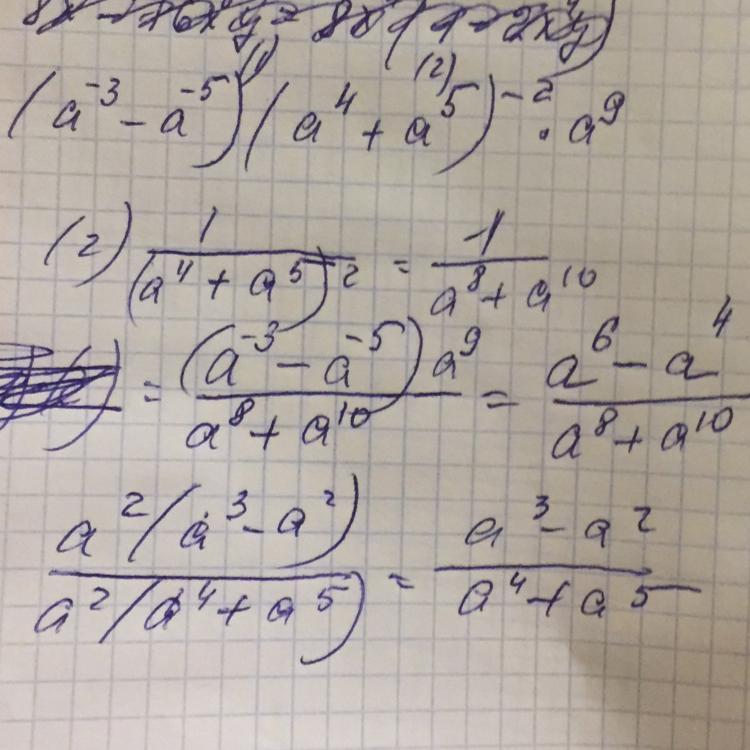 8x - 16x⁴y = 8x(1 - 2x⁴y)
(a⁻³ - a⁻⁵)⁽¹⁾(a⁴ + a⁵)⁽²⁾⁻² · a⁹
(2) 1/(a⁴ + a⁵)² = 1/(a⁸ + a¹⁰)
= (a⁻³ - a⁻⁵)a⁹/(a⁸ + a¹⁰) = (a⁶ - a⁴)/(a⁸ + a¹⁰)
a²(a³ - a²)/a²(a⁴ + a⁵) = (a³ - a²)/(a⁴ + a⁵)